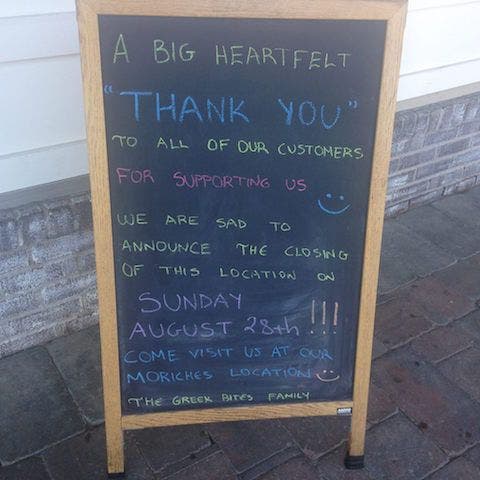 A BIG HEARTFELT
"THANK YOU"
TO ALL OF OUR CUSTOMERS
FOR SUPPORTING US
WE ARE SAD TO
ANNOUNCE THE CLOSING
OF THIS LOCATION ON
SUNDAY
AUGUST 28th !!!
COME VISIT US AT OUR
MORICHES LOCATION
THE GREEK BITES FAMILY